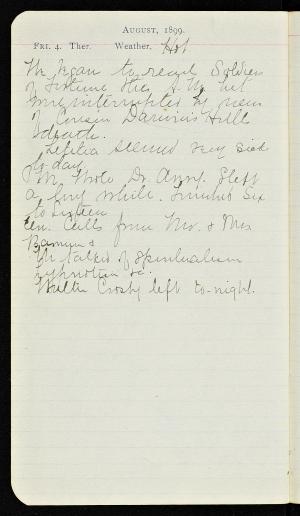 August, 1899.
Fri. 4. Ther. Weather, Hot
We began to read Soldiers
of Fortune this A.M. but
were interrupted by news
of Cousin Darwin's Hill
death.
seemed very tired
to-day.
We Wrote Dr. Anny. Slept
a long while. Six
to Sixteen
Calls from Mr. & Mrs
We talked of Spiritualism
hypnotism &c.
Walter Crosby left to-night.